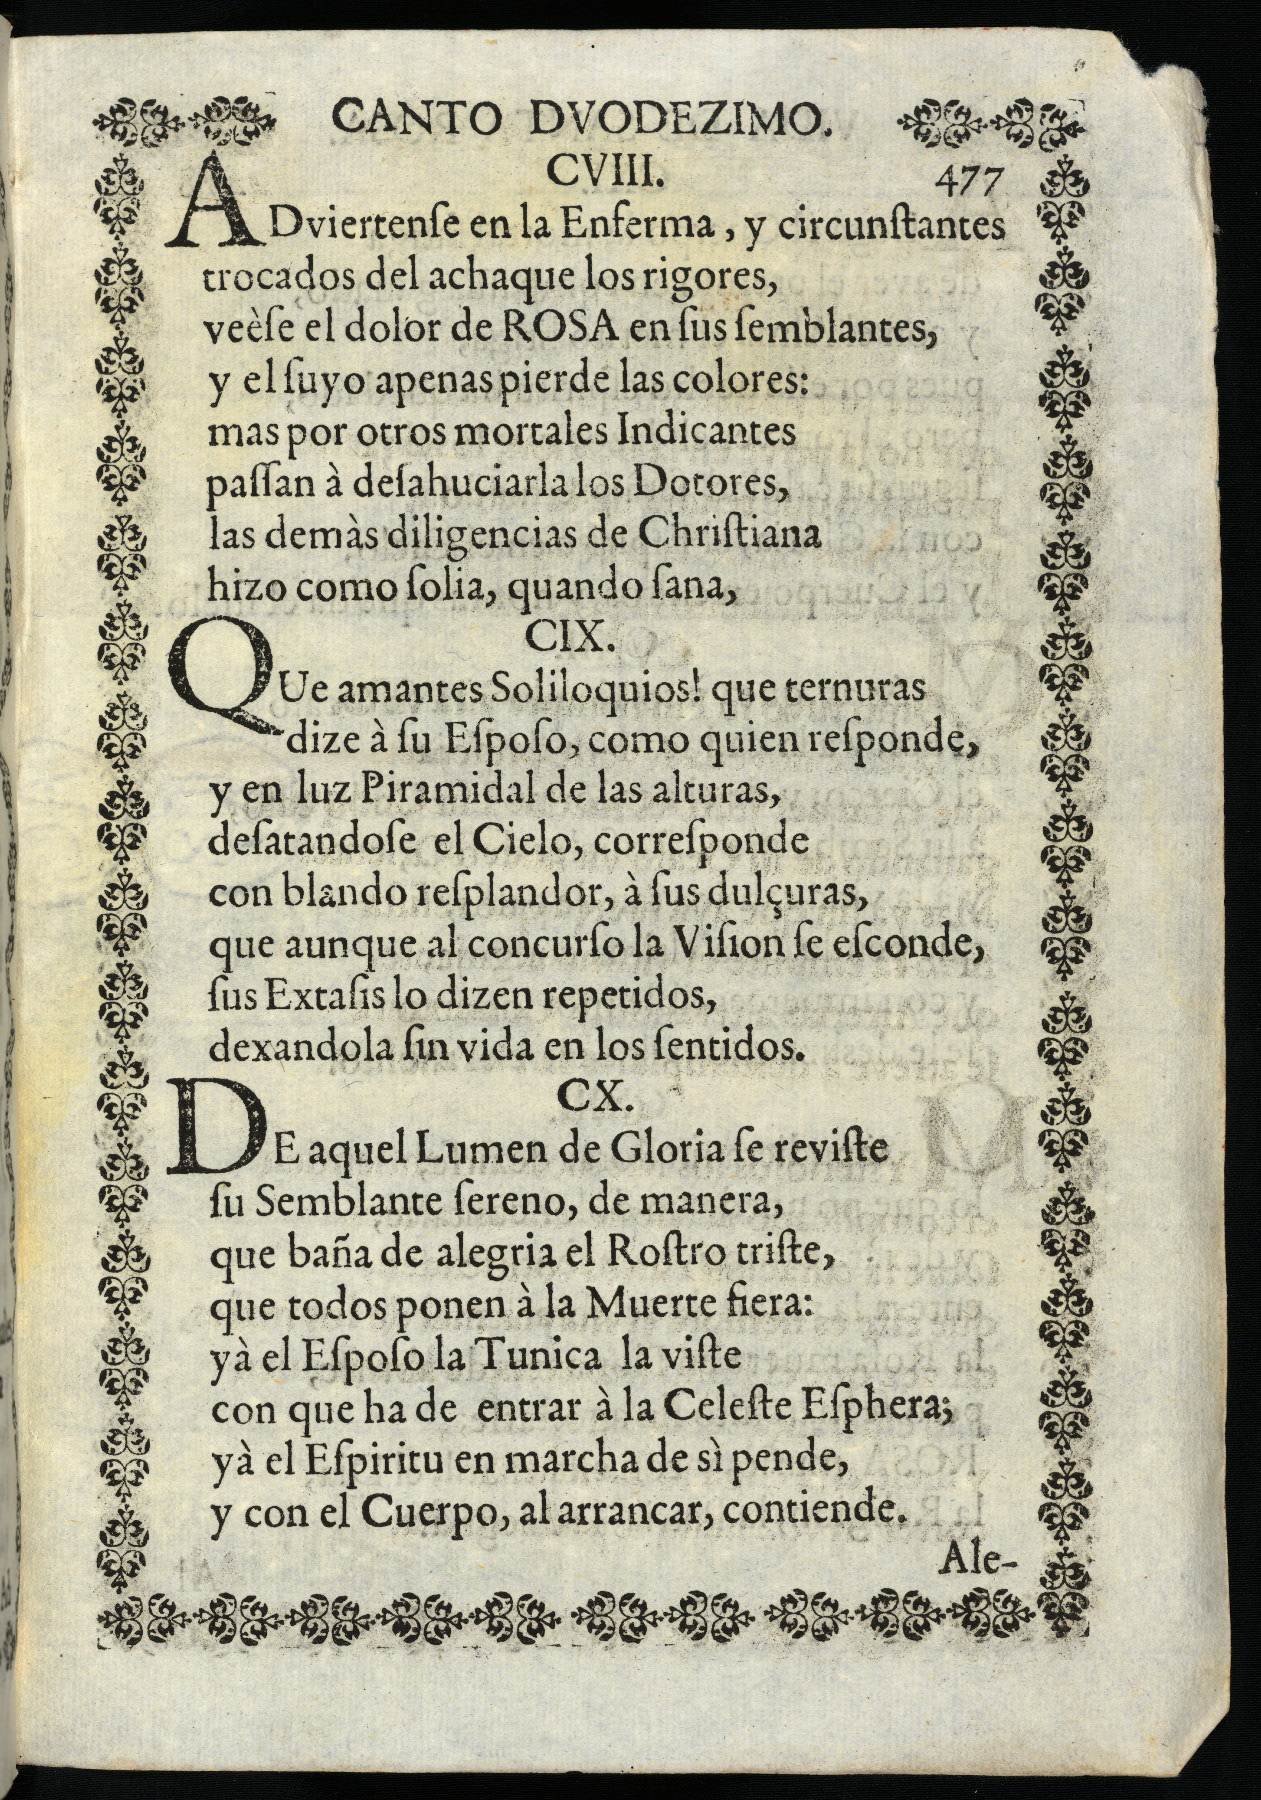 CANTO DVODEZIMO.
CVIII. 477
ADviertenſe en la Enferma, y circunſtantes
trocados del achaque los rigores,
veèſe el dolor de ROSA en ſus ſemblantes,
y el ſuyo apenas pierde las colores:
mas por otros mortales Indicantes
paſſan à deſahuciarla los Dotores,
las demàs diligencias de Chriſtiana
hizo como ſolia, quando ſana,
CIX.
QUe amantes Soliloquios! que ternuras
dize à ſu Eſpoſo, como quien reſponde,
y en luz Piramidal de las alturas,
deſatandoſe el Cielo, correſponde
con blando reſplandor, à ſus dulçuras,
que aunque al concurſo la Viſion ſe eſconde,
ſus Extaſis lo dizen repetidos,
dexandola ſin vida en los ſentidos.
CX.
DE aquel Lumen de Gloria ſe reviſte
ſu Semblante ſereno, de manera,
que baña de alegria el Roſtro triſte,
que todos ponen à la Muerte fiera:
yà el Eſpoſo la Tunica la viſte
con que ha de entrar à la Celeſte Eſphera;
yà el Eſpiritu en marcha de sì pende,
y con el Cuerpo, al arrancar, contiende.
Ale-